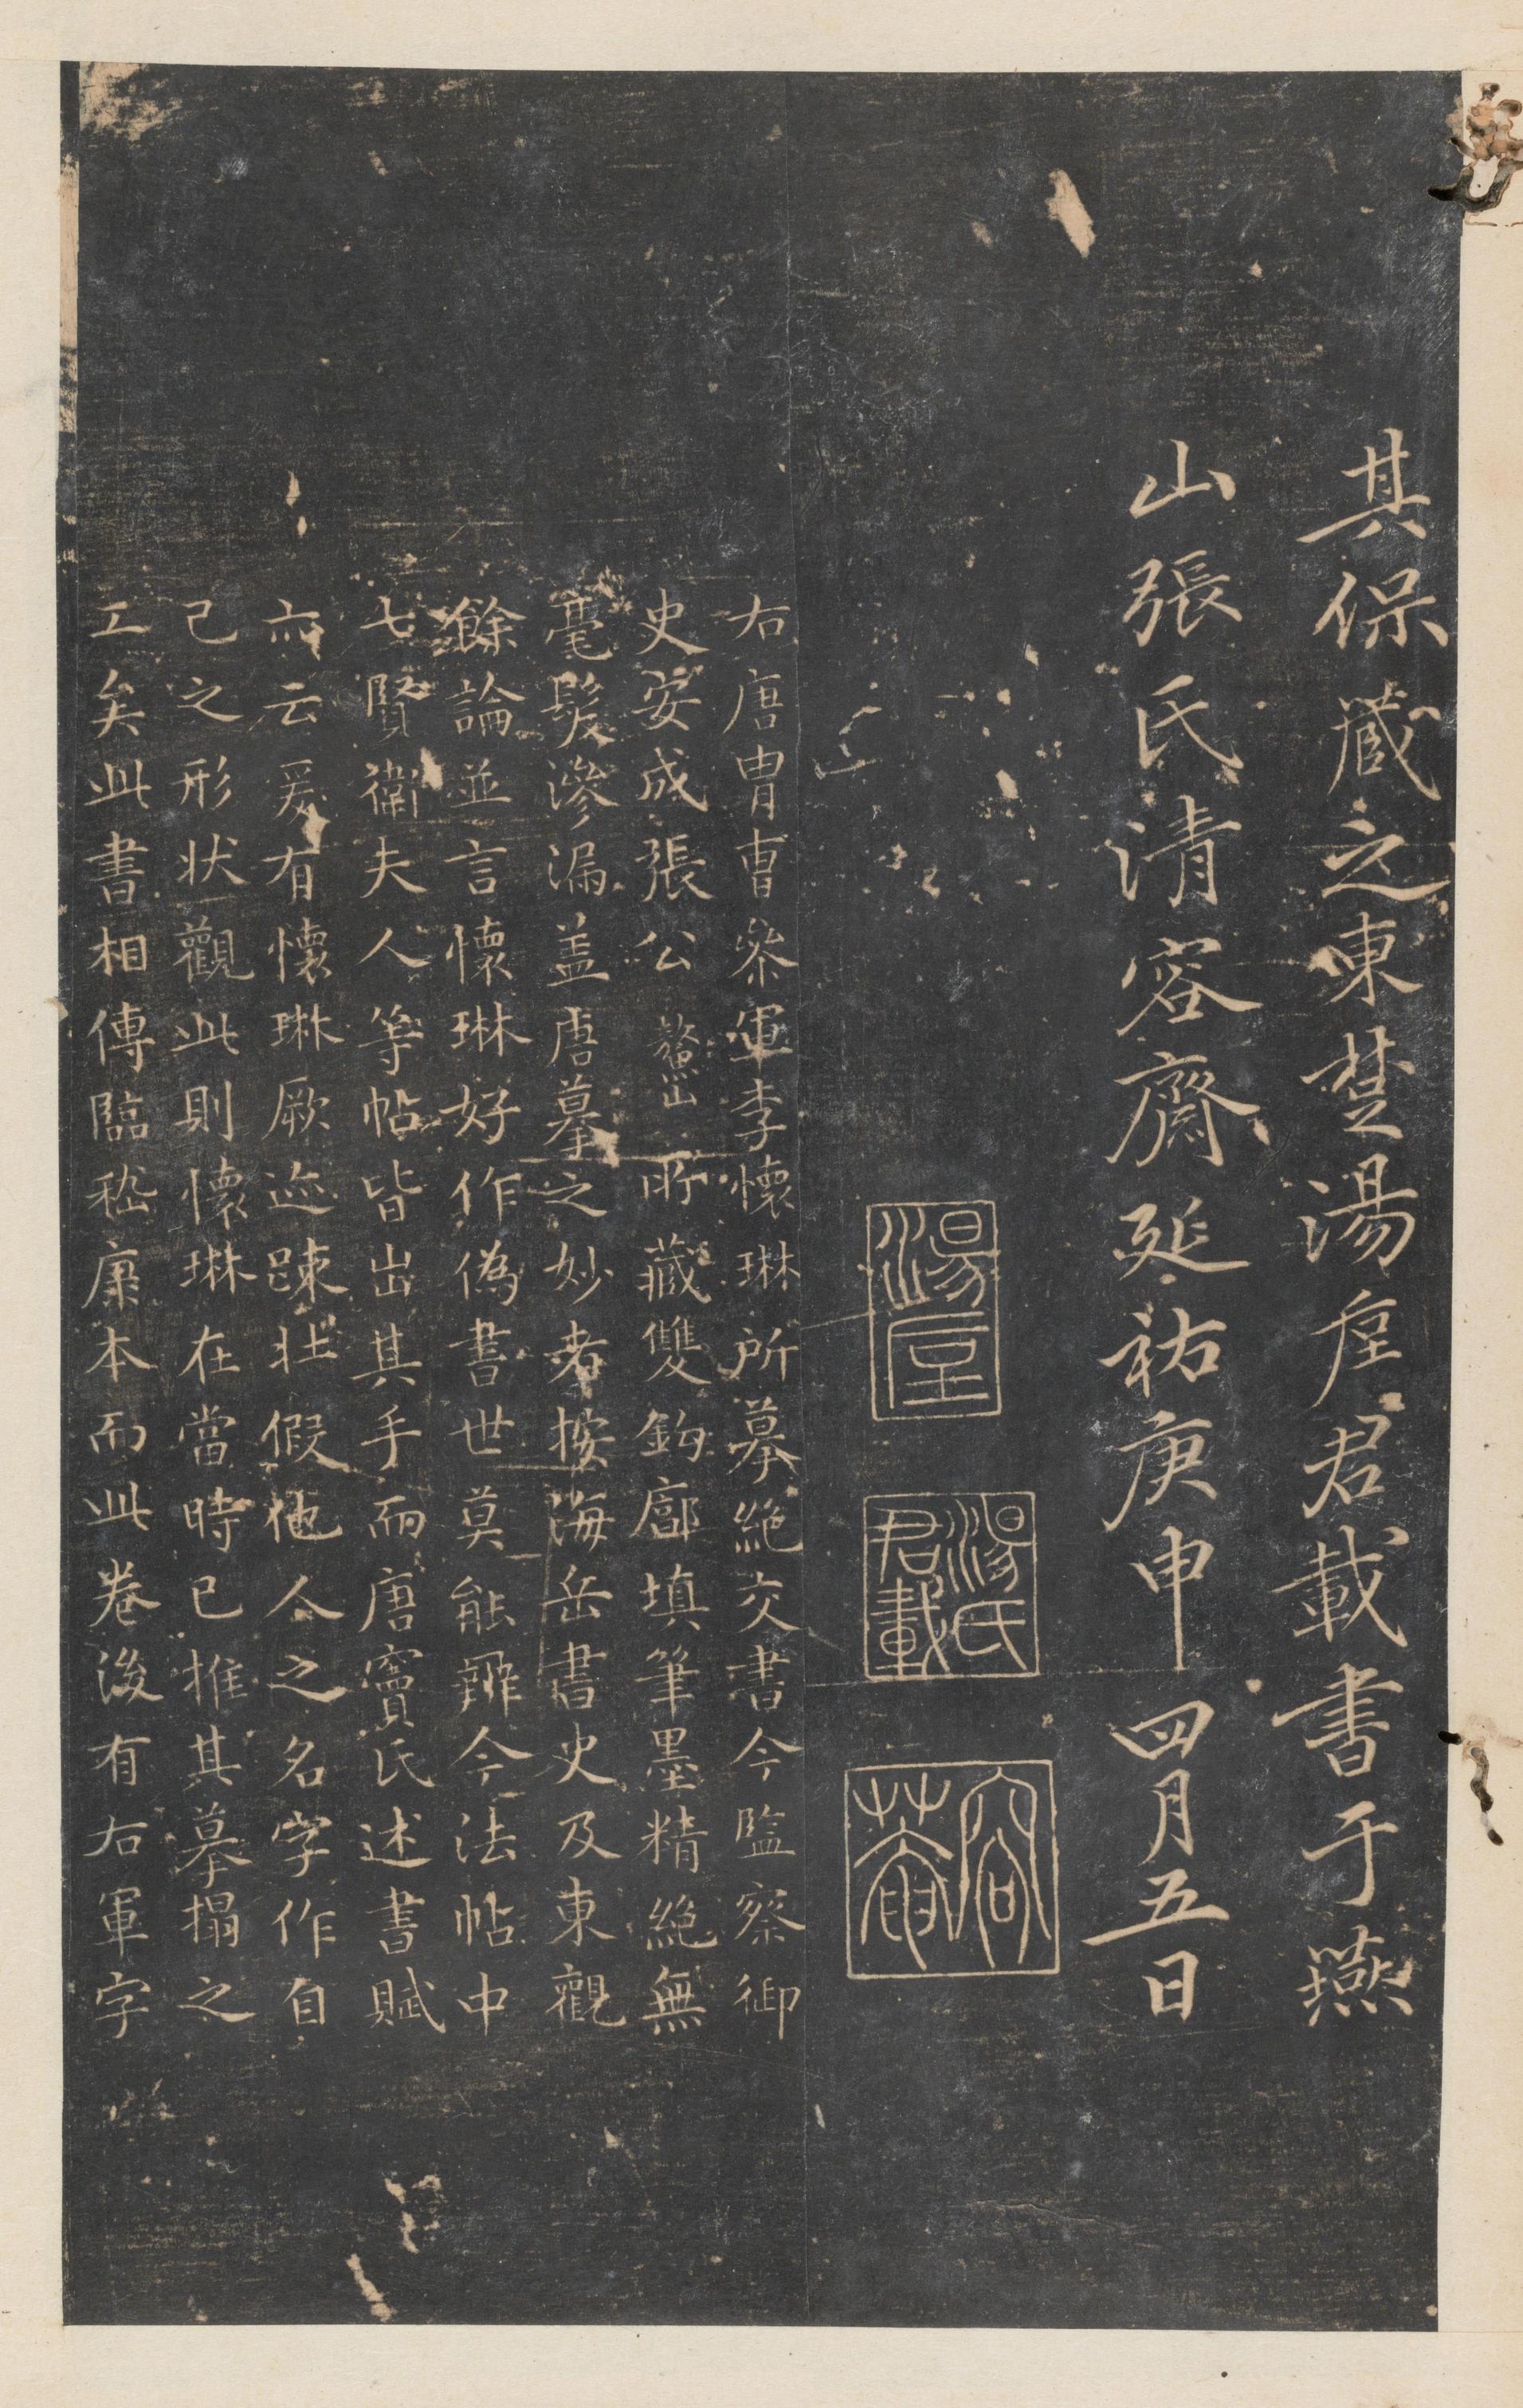 其保蔵之東楚湯垕君載書于燕
山張氏清容齋延祐庚申四月五日
湯垕
湯氏君載
容菴
右唐胄曹叅軍李懷琳所摹絶交書今監察御
史安成張公鼇山所藏雙鈎廓填筆墨精絶無
毫髮滲漏盖唐摹之妙者按海岳書史及東觀
餘論並言懷琳好作偽書世莫能辨今法帖中
七賢衛夫人等帖皆出其手而唐竇氏述書賦
亦云爰有懷琳厥迹踈壯假他人之名字作自
己之形狀觀此則懷琳在當時已推其摹搨之
工矣此書相傳臨嵇康本而此卷後有右軍字